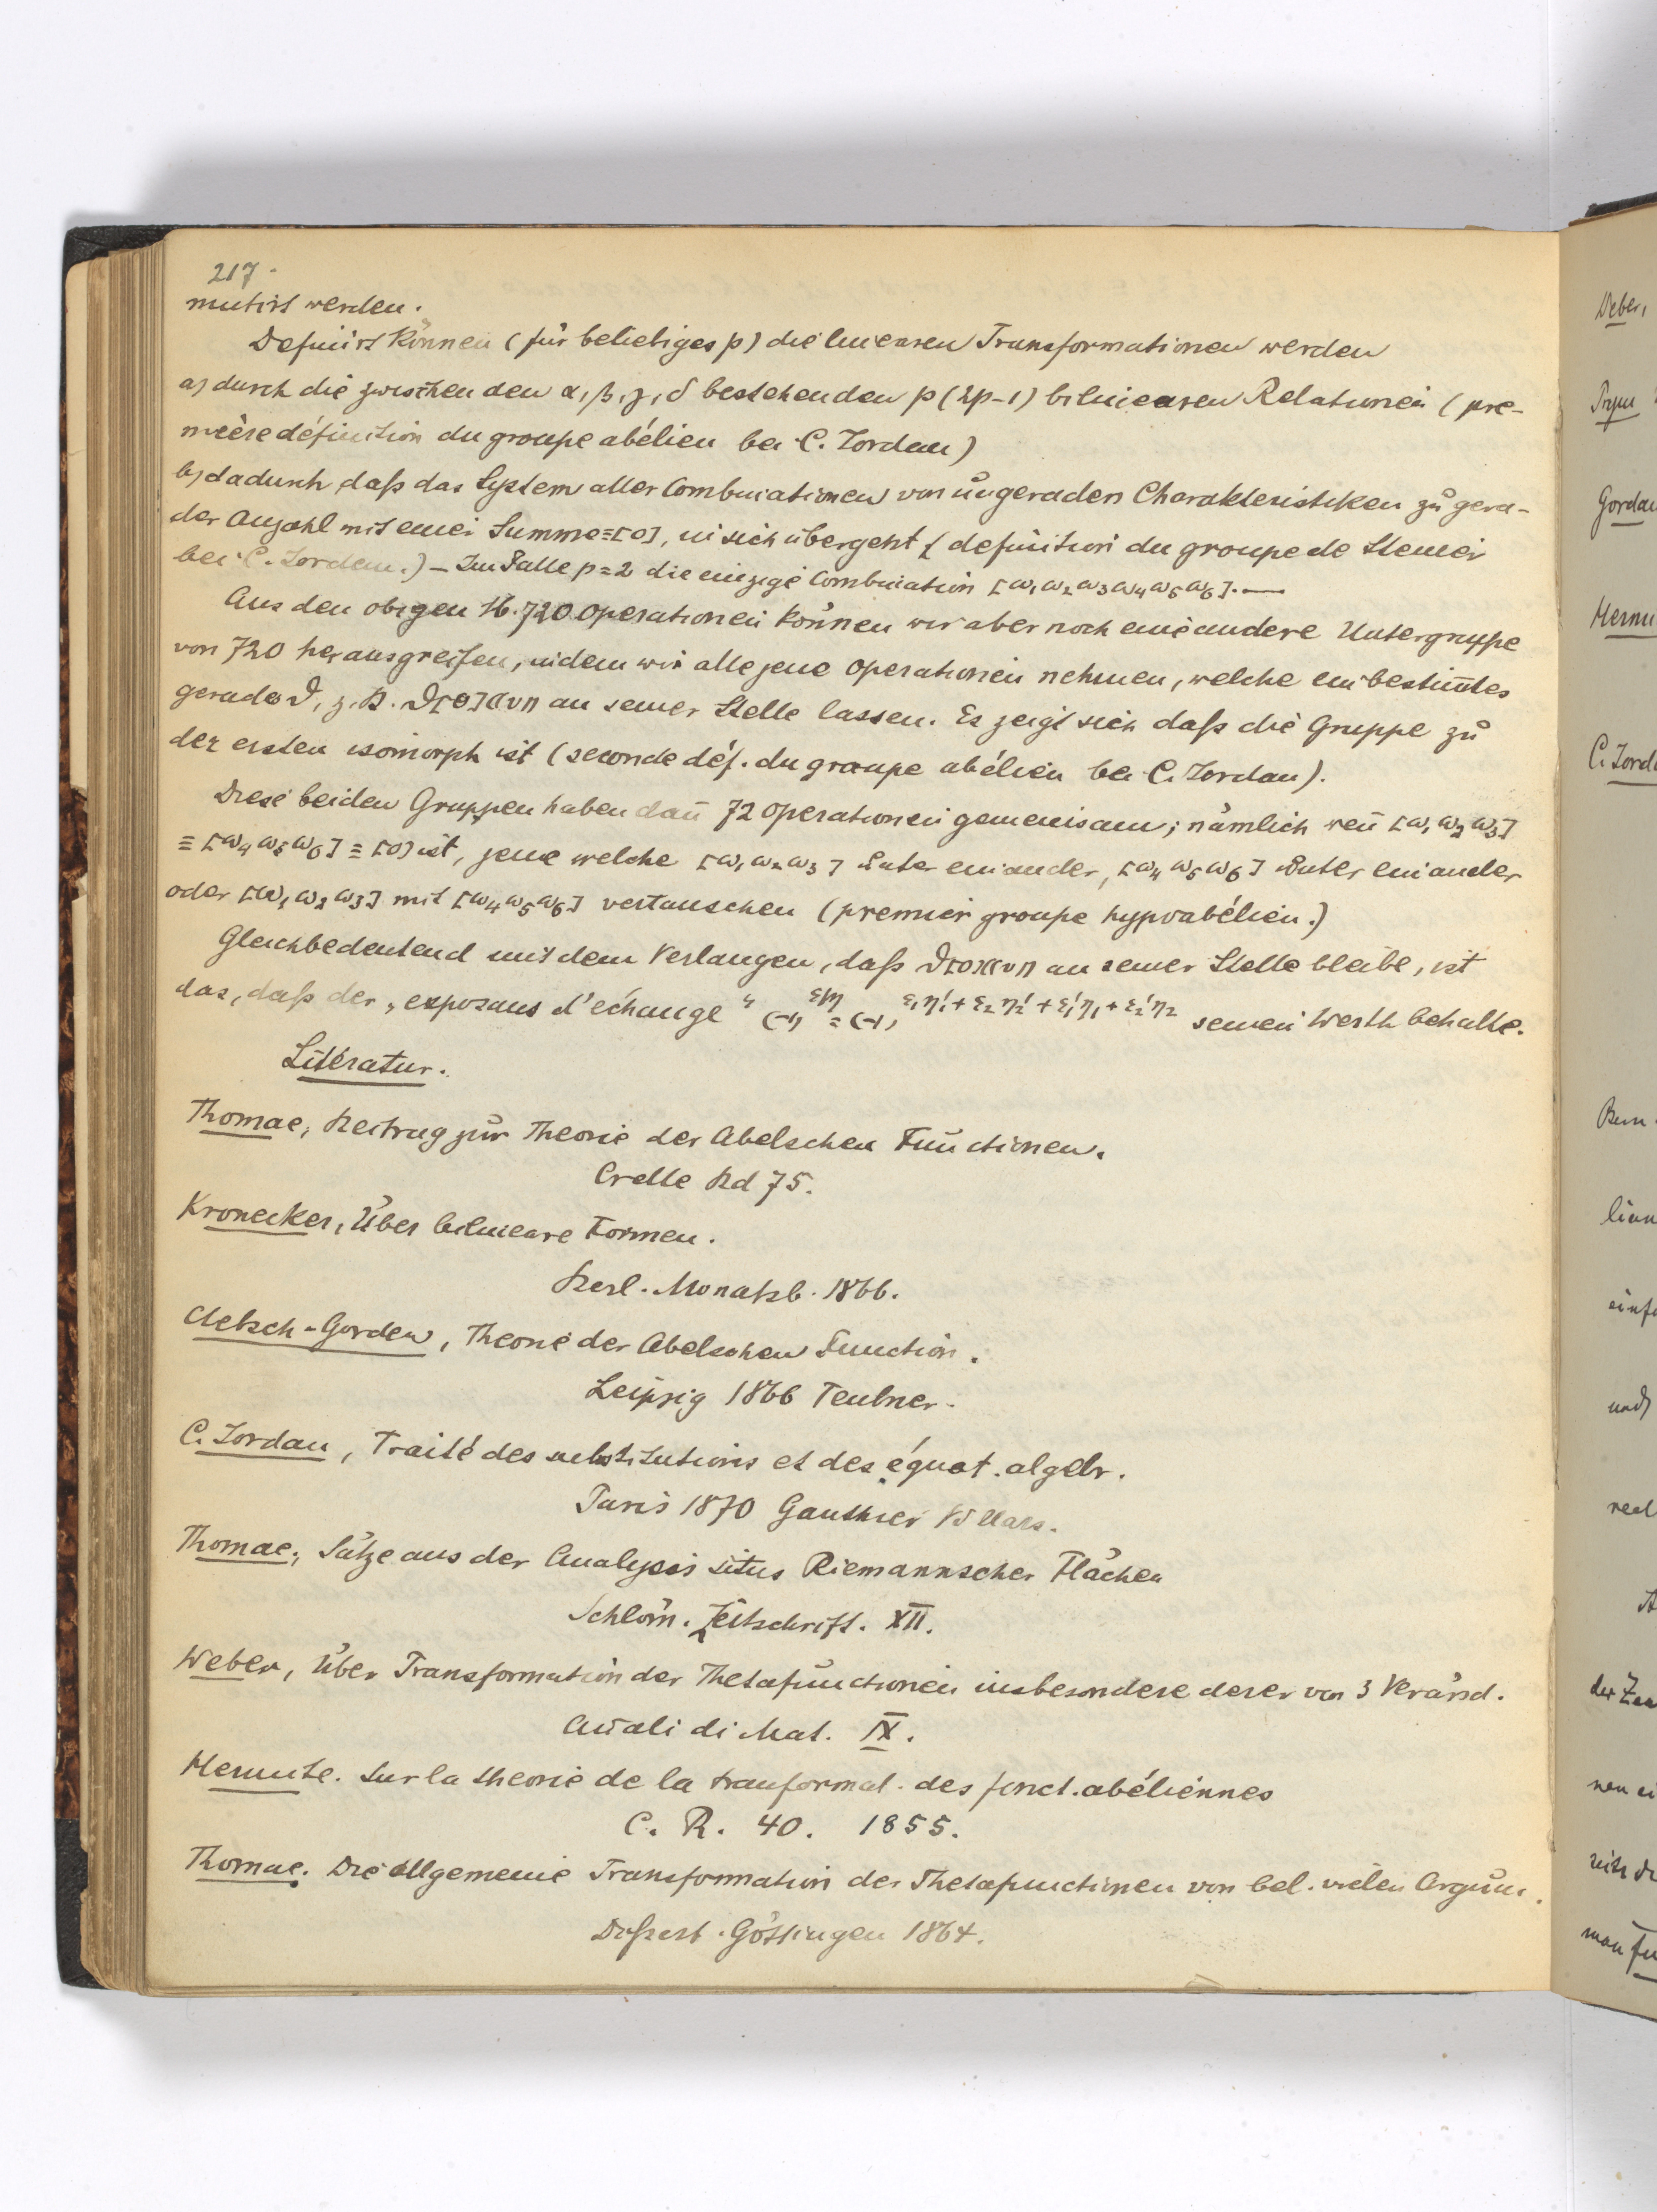 217.
mutirt werden.
Definirt können (für beliebiges p) die linearen Transformationen werden
a) durch die zwischen den α, β, γ, δ bestehenden p(2p-1) bilinearen Relationen (pre-
mière définition du groupe abélien bei C. Jordan)
b) dadurch, daß das System aller Combinationen von ungeraden Charakteristiken zu gera-
der Anzahl mit einer Summe≡[0], in sich übergeht (definition du groupe de Steiner
bei C. Jordan.) — Im Falle p=2 die einzige Combination [ω₁ω₂ω₃ω₄ω₅ω₆]. —
Aus den obigen 16.720 Operationen können wir aber noch eine andere Untergruppe
von 720 herausgreifen, indem wir alle jene Operationen nehmen, welche ein bestim̅tes
gerades ϑ, z. B. ϑ[0]((v)) an seiner Stelle lassen. Es zeigt sich daß die Gruppe zu
der ersten isomorph ist (seconde déf. du groupe abélien bei C. Jordan).
Diese beiden Gruppen haben dan̅ 72 Operationen gemeinsam; nämlich wen̅ [ω₁ω₂ω₃]
≡[ω₄ω₅ω₆]≡[0] ist, jene welche [ω₁ω₂ω₃] unter einander, [ω₄ω₅ω₆] unter einander
oder [ω₁ω₂ω₃] mit [ω₄ω₅ω₆] vertauschen (premier groupe hypoabélien.)
Gleichbedeutend mit dem Verlangen, daß ϑ[0]((v)) an seiner Stelle bleibe, ist
das, daß der „exposans d'échange“ (-1)^{ε|η} = (-1)^{ε₁η₁'+ε₂η₂'+ε₁'η₁+ε₂'η₂} seinen Werth behalte.
Literatur.
Thomae, Beitrag zur Theorie der Abelschen Functionen.
Crelle Bd 75.
Kronecker, Über bilineare Formen.
Berl. Monatsb. 1866.
Clebsch-Gordan, Theorie der Abelschen Function.
Leipzig 1866 Teubner.
C. Jordan, Traité des substitutions et des équat. algebr.
Paris 1870 Gauthier Villars.
Thomae, Sätze aus der Analysis situs Riemannscher Flächen
Schlöm. Zeitschrift. XII.
Weber, Über Transformation der Thetafunctionen insbesondere derer von 3 Veränd.
An̅ali di Mat. IX.
Hermite. Sur la théorie de la transformat. des fonct. abéliennes
C. R. 40. 1855.
Thomae. Die allgemeine Transformation der Thetafunctionen von bel. vielen Argum.
Dissert. Göttingen 1864.
Weber,
Prym
Gordan
C. Jord